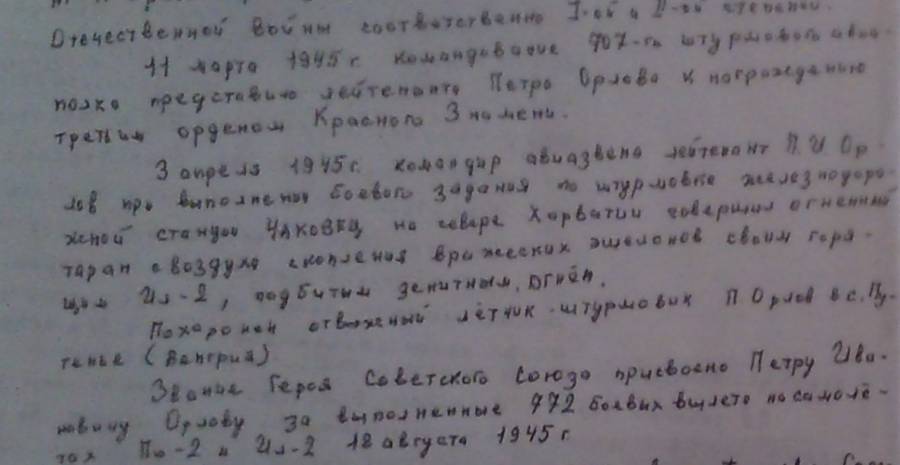 Отечественной войны соответственно I-ой и II-ой степеней.
11 марта 1945 г. командование 707-го штурмового авиа-
полка представило лейтенанта Петра Орлова к награждению
третьим орденом Красного Знамени.
3 апреля 1945 г. командир авиазвена лейтенант П. И. Ор-
лов при выполнении боевого задания по штурмовке железнодоро-
жной станции ЧАКОВЕЦ на севере Хорватии совершил огненный
таран с воздуха скопления вражеских эшелонов своим горя-
щим Ил-2, подбитым зенитным огнём.
Похоронен отважный лётчик-штурмовик П Орлов в с.
(Венгрия)
Звание Героя Советского Союза присвоено Петру Ива-
новичу Орлову за выполненные 772 боевых вылета на самолё-
тах По-2 и Ил-2 18 августа 1945 г